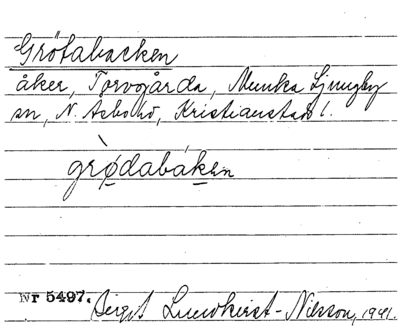 Grötabacken
åker, Torvgårda, Munka Ljungby
sn, N. Åsbo hd, Kristianstads l.
grò̤dabáken
Nr 5497. Birgit Lundkvist-Nilsson, 1941.